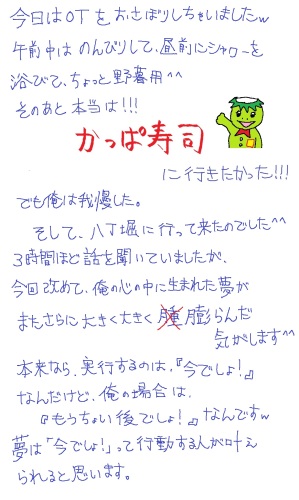 今日はOTをおさぼりしちゃいましたw
午前中はのんびりして、昼前にシャローを
浴びて、ちょっと野暮用^^
そのあと本当は!!!
かっぱ寿司
に行きたかった!!!
でも俺は我慢した。
そして、八丁堀に行って来たのでした^^
3時間ほど話を聞いていましたが、
今回改めて、俺の心の中に生まれた夢が
またさらに大きく大きく腫膨らんだ
気がします^^
本来なら、実行するのは、『今でしょ!』
なんだけど、俺の場合は、
『もうちょい後でしょ!』なんですw
夢は「今でしょ!」って行動する人が叶え
られると思います。